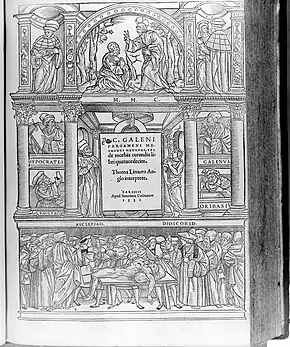 M. M. C.
C. GALENI
PERGAMENI ME-
THODUS MEDENDI, vel
de morbis curandis li-
bri quatuordecim.
Thoma Linacro An-
glo interprete.
PARISIIS
Apud Simonem Colinaeum
HYPOCRATES
GALENUS
ORIBASI
ASCLEPIAD.
DIOSCORID.